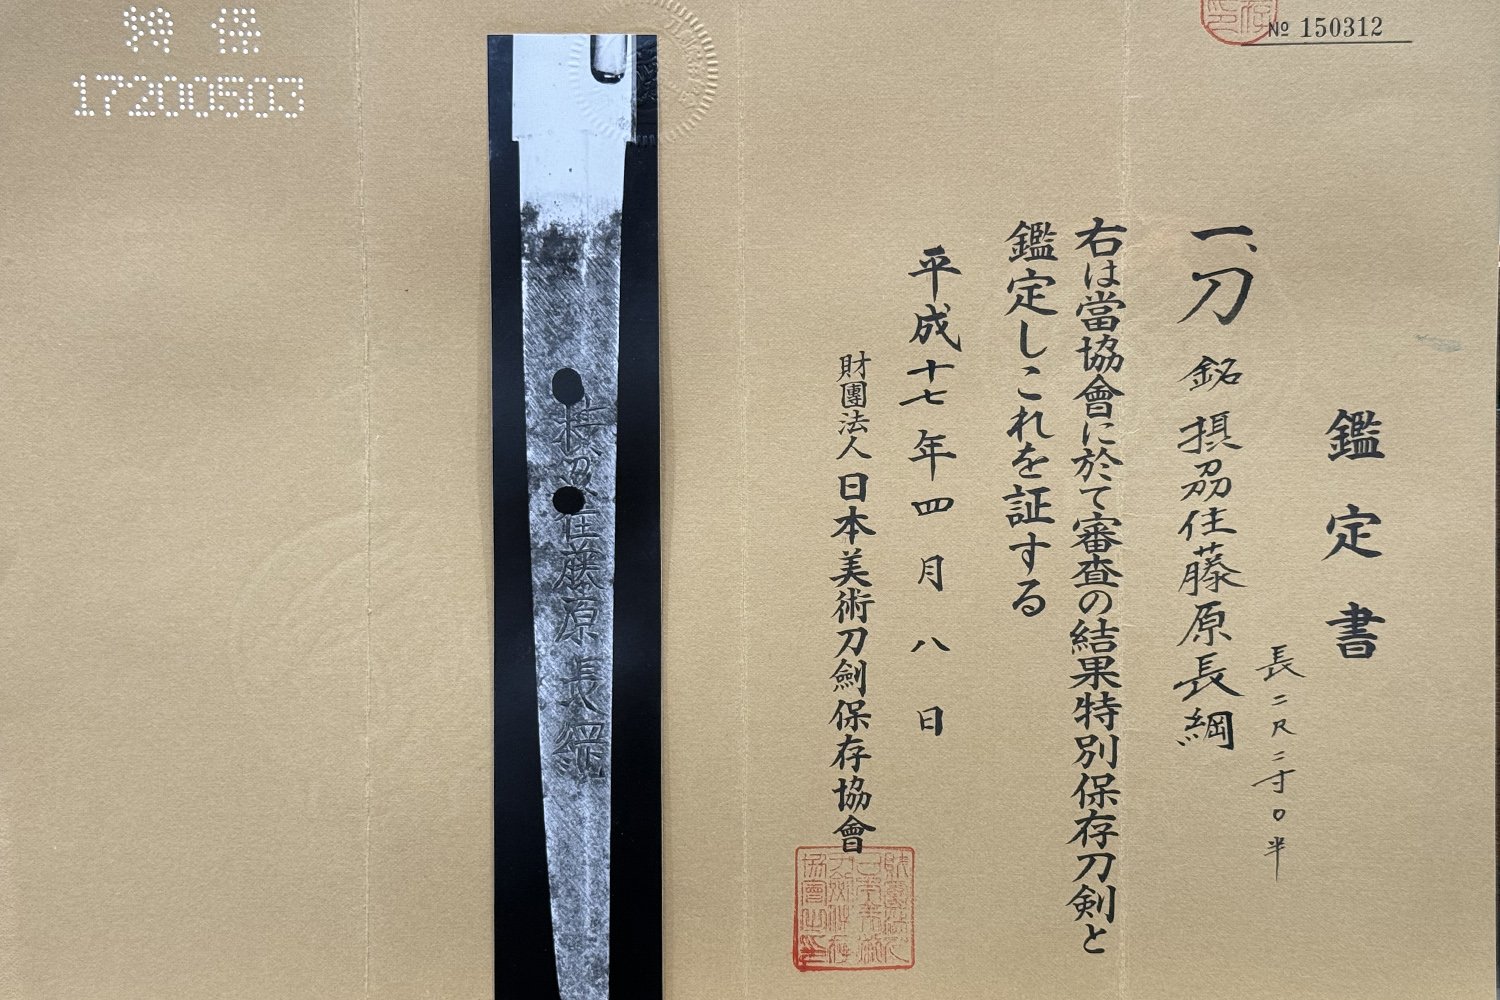 No 150312
鑑定書
一、刀 銘 摂刕住藤原長綱
長二尺二寸〇半
右は當協會に於て審査の結果特別保存刀剣と
鑑定しこれを証する
平成十七年四月八日
財團法人 日本美術刀劍保存協會
特保
17200503
住藤原長綱